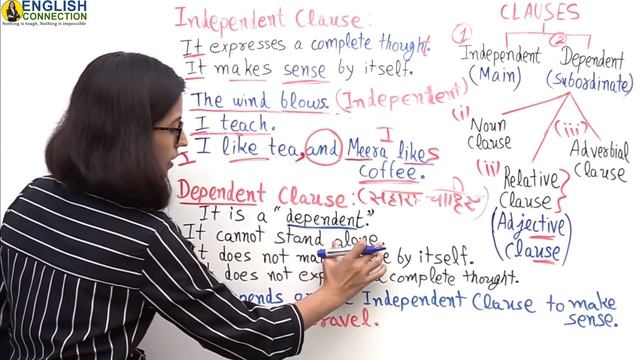 ENGLISH
CONNECTION
Nothing is tough, Nothing is impossible
Independent Clause:
It expresses a complete thought.
It makes sense by itself.
The wind blows. (Independent)
I teach.
I I
I like tea, and Meera likes
coffee.
Dependent Clause: (सहारा चाहिए) D
It is a "dependent."
It cannot stand alone.
It does not by itself.
does not complete thought.
Independent Clause to make
sense.
travel.
CLAUSES
1 2
Independent Dependent
(Main) (Subordinate)
(i) (iii)
Noun
Clause
Adverbial
Clause
(ii) Relative
Clause
(Adjective
Clause)